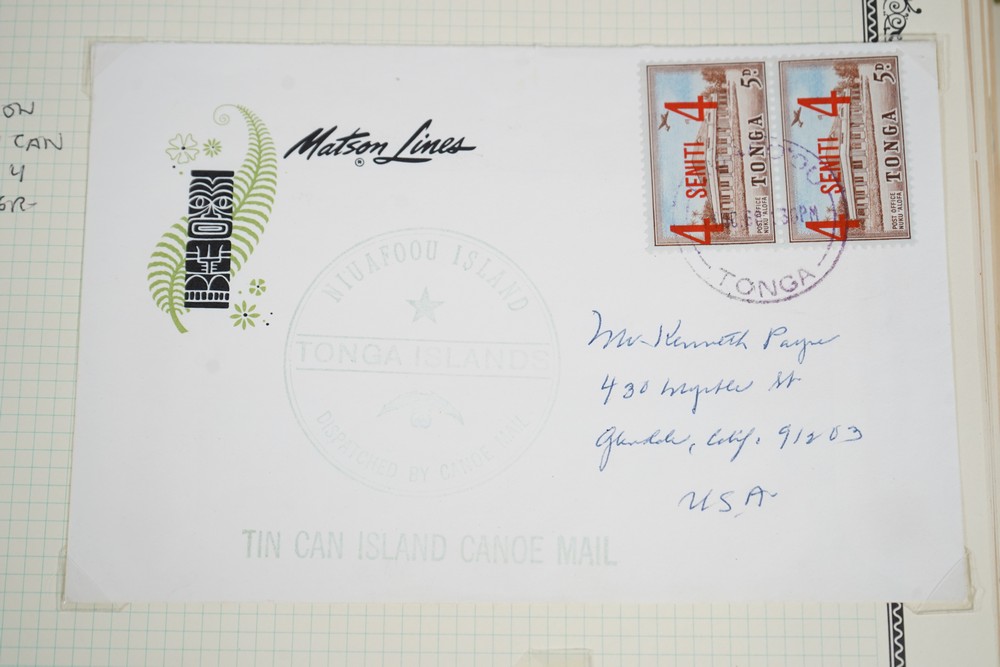 ON
CAN
4
Matson Lines
®
5D
4 SENITI 4
TONGA
POST OFFICE
NUKU'ALOFA
5D
4 SENITI 4
TONGA
POST OFFICE
NUKU'ALOFA
PM
TONGA
NIUAFOOU ISLAND
TONGA ISLANDS
DISPATCHED BY CANOE MAIL
Mr. Kenneth Payne
430 Myrtle St
Glendale, Calif. 91203
USA
TIN CAN ISLAND CANOE MAIL